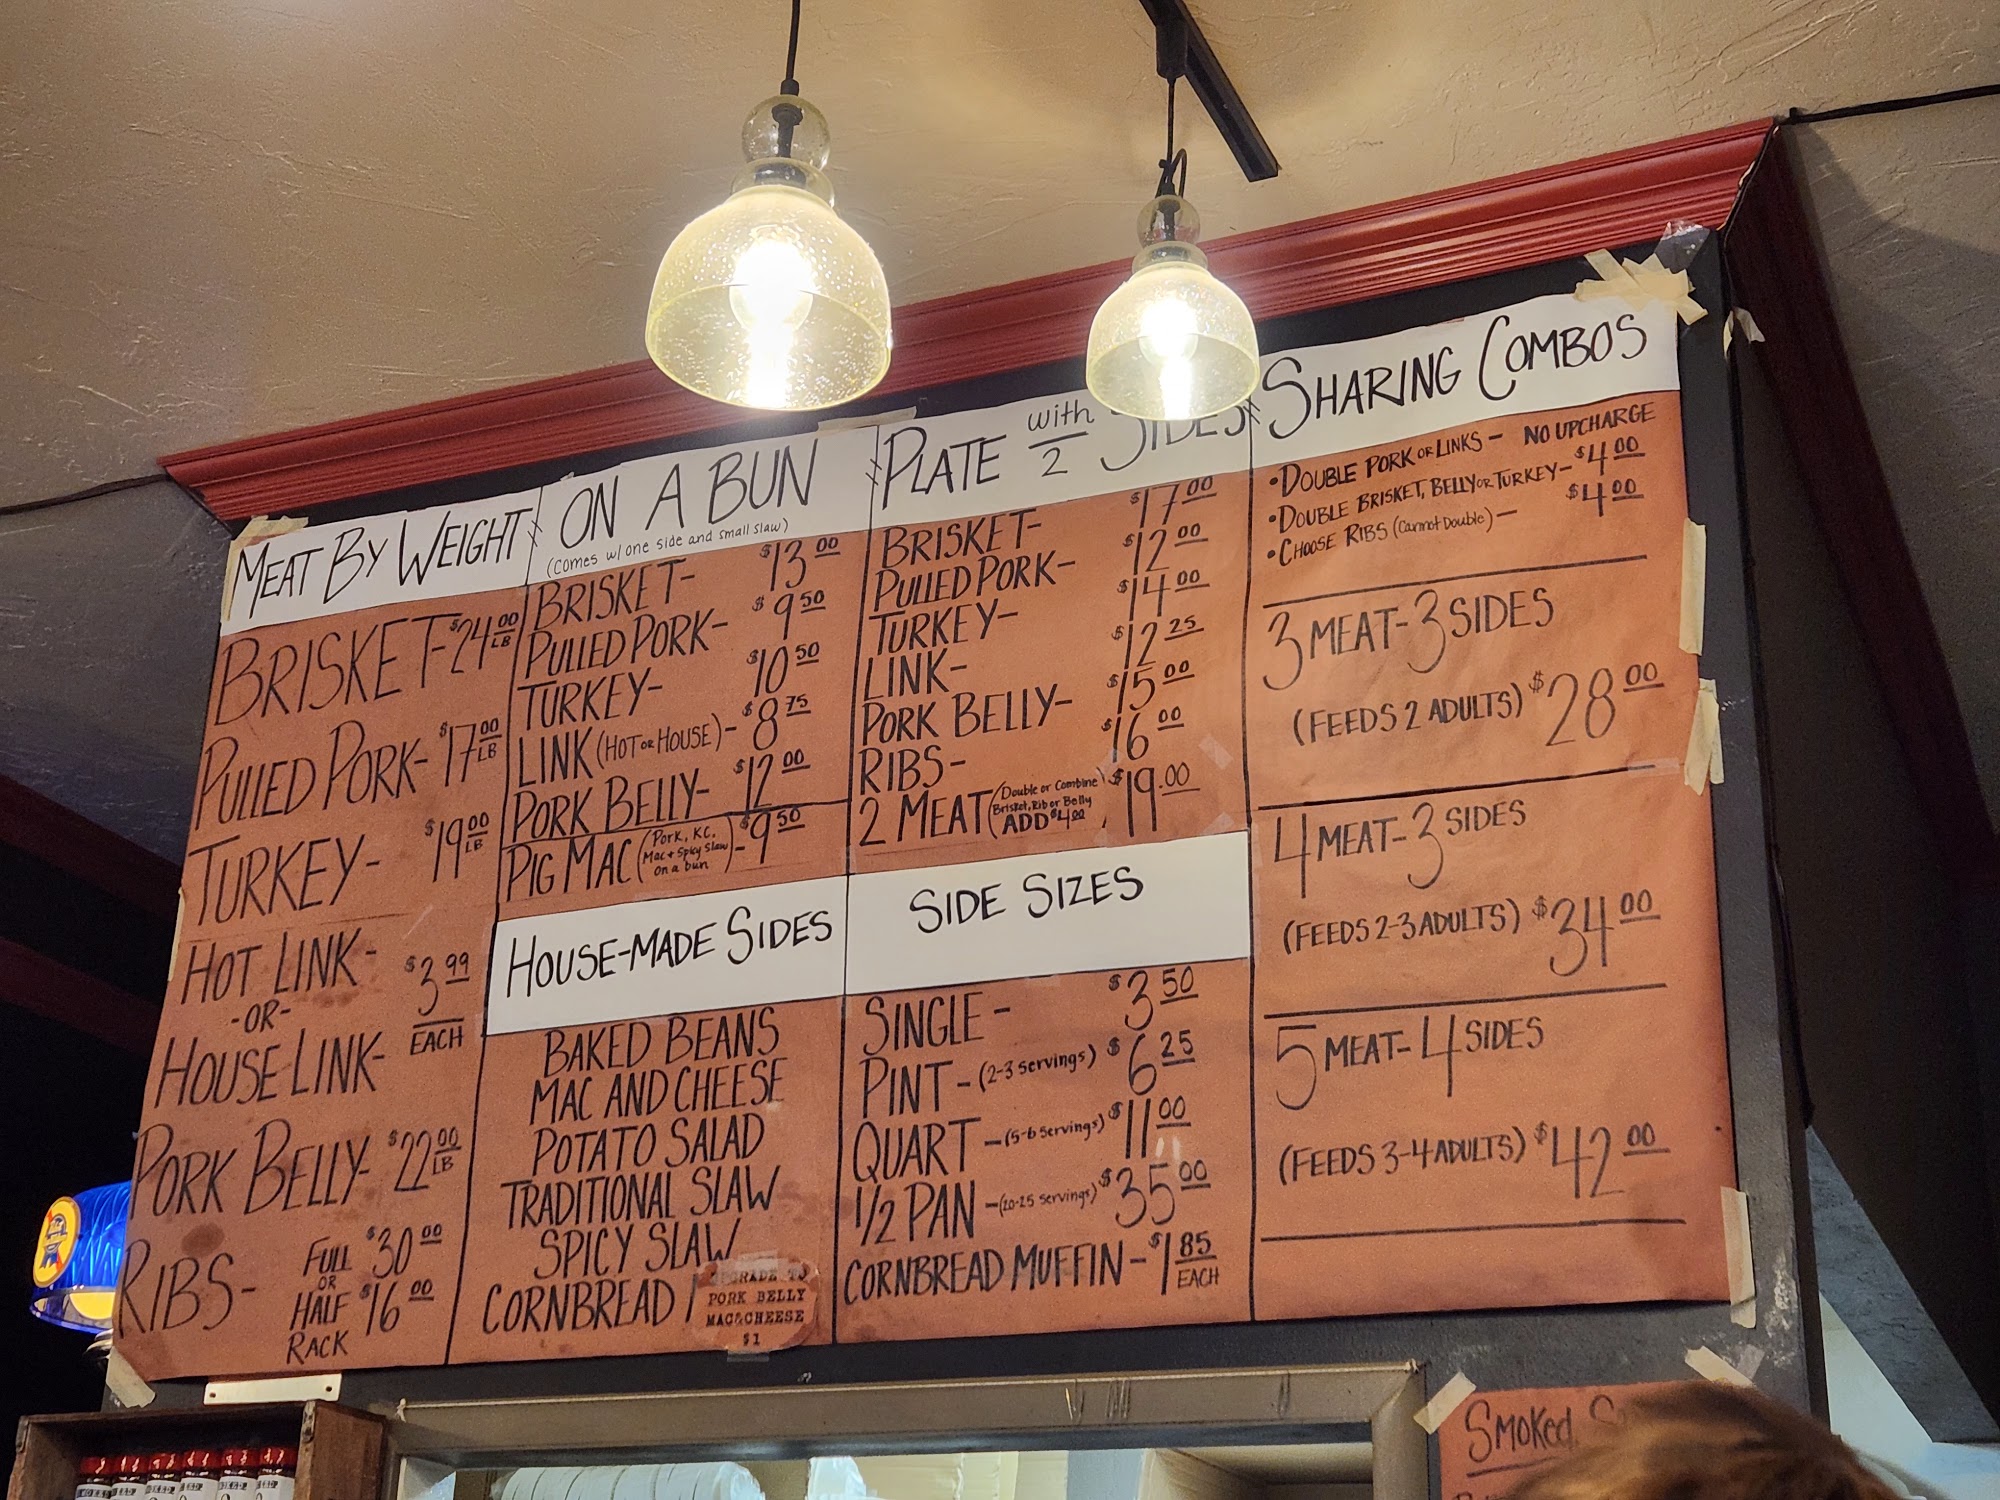 MEAT BY WEIGHT
BRISKET- $24.00 LB
PULLED PORK- $17.00 LB
TURKEY- $19.00 LB
HOT LINK-
-OR-
HOUSE LINK-
$3.99
EACH
PORK BELLY- $22.00 LB
RIBS- FULL $30.00
OR
HALF $16.00
RACK
ON A BUN
(Comes w/ one side and small slaw)
BRISKET- $13.00
PULLED PORK- $9.50
TURKEY- $10.50
LINK (HOT OR HOUSE)- $8.75
PORK BELLY- $12.00
PIG MAC (Pork, KC. Mac + Spicy Slaw on a bun)- $9.50
HOUSE-MADE SIDES
BAKED BEANS
MAC AND CHEESE
POTATO SALAD
TRADITIONAL SLAW
SPICY SLAW
CORNBREAD
UPGRADE TO
PORK BELLY
MAC&CHEESE
$1
PLATE with 2 SIDES
BRISKET- $17.00
PULLED PORK- $12.00
TURKEY- $14.00
LINK- $12.25
PORK BELLY- $15.00
RIBS- $16.00
2 MEAT (Double or Combine Brisket, Rib or Belly ADD $4.00) $19.00
SIDE SIZES
SINGLE- $3.50
PINT-(2-3 servings) $6.25
QUART-(5-6 servings) $11.00
1/2 PAN-(20-25 servings) $35.00
CORNBREAD MUFFIN- $1.85 EACH
SHARING COMBOS
•DOUBLE PORK OR LINKS- NO UPCHARGE
•DOUBLE BRISKET, BELLY OR TURKEY- $4.00
•CHOOSE RIBS (Cannot Double)- $4.00
3 MEAT-3 SIDES
(FEEDS 2 ADULTS) $28.00
4 MEAT-3 SIDES
(FEEDS 2-3 ADULTS) $34.00
5 MEAT-4 SIDES
(FEEDS 3-4 ADULTS) $42.00
SMOKED